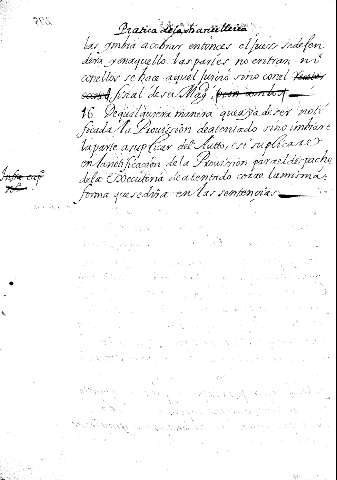 Pratica de la chancilleria
las ymbia a cobrar entonces el juez se defen
dera, y en aquello las partes no entran ni
con ellos se hace aquel juicio sino con el
fiscal de su Magd.
16 De qualquiera manera que aya de ser noti
ficada la Provission de atentado sino imbiare
la parte a suplicar del Autto, o si suplicare
en la notificación de la Provissión para el despacho
de la Executoria de atentado corre la misma
forma que se dira en las sentencias
Infra cap